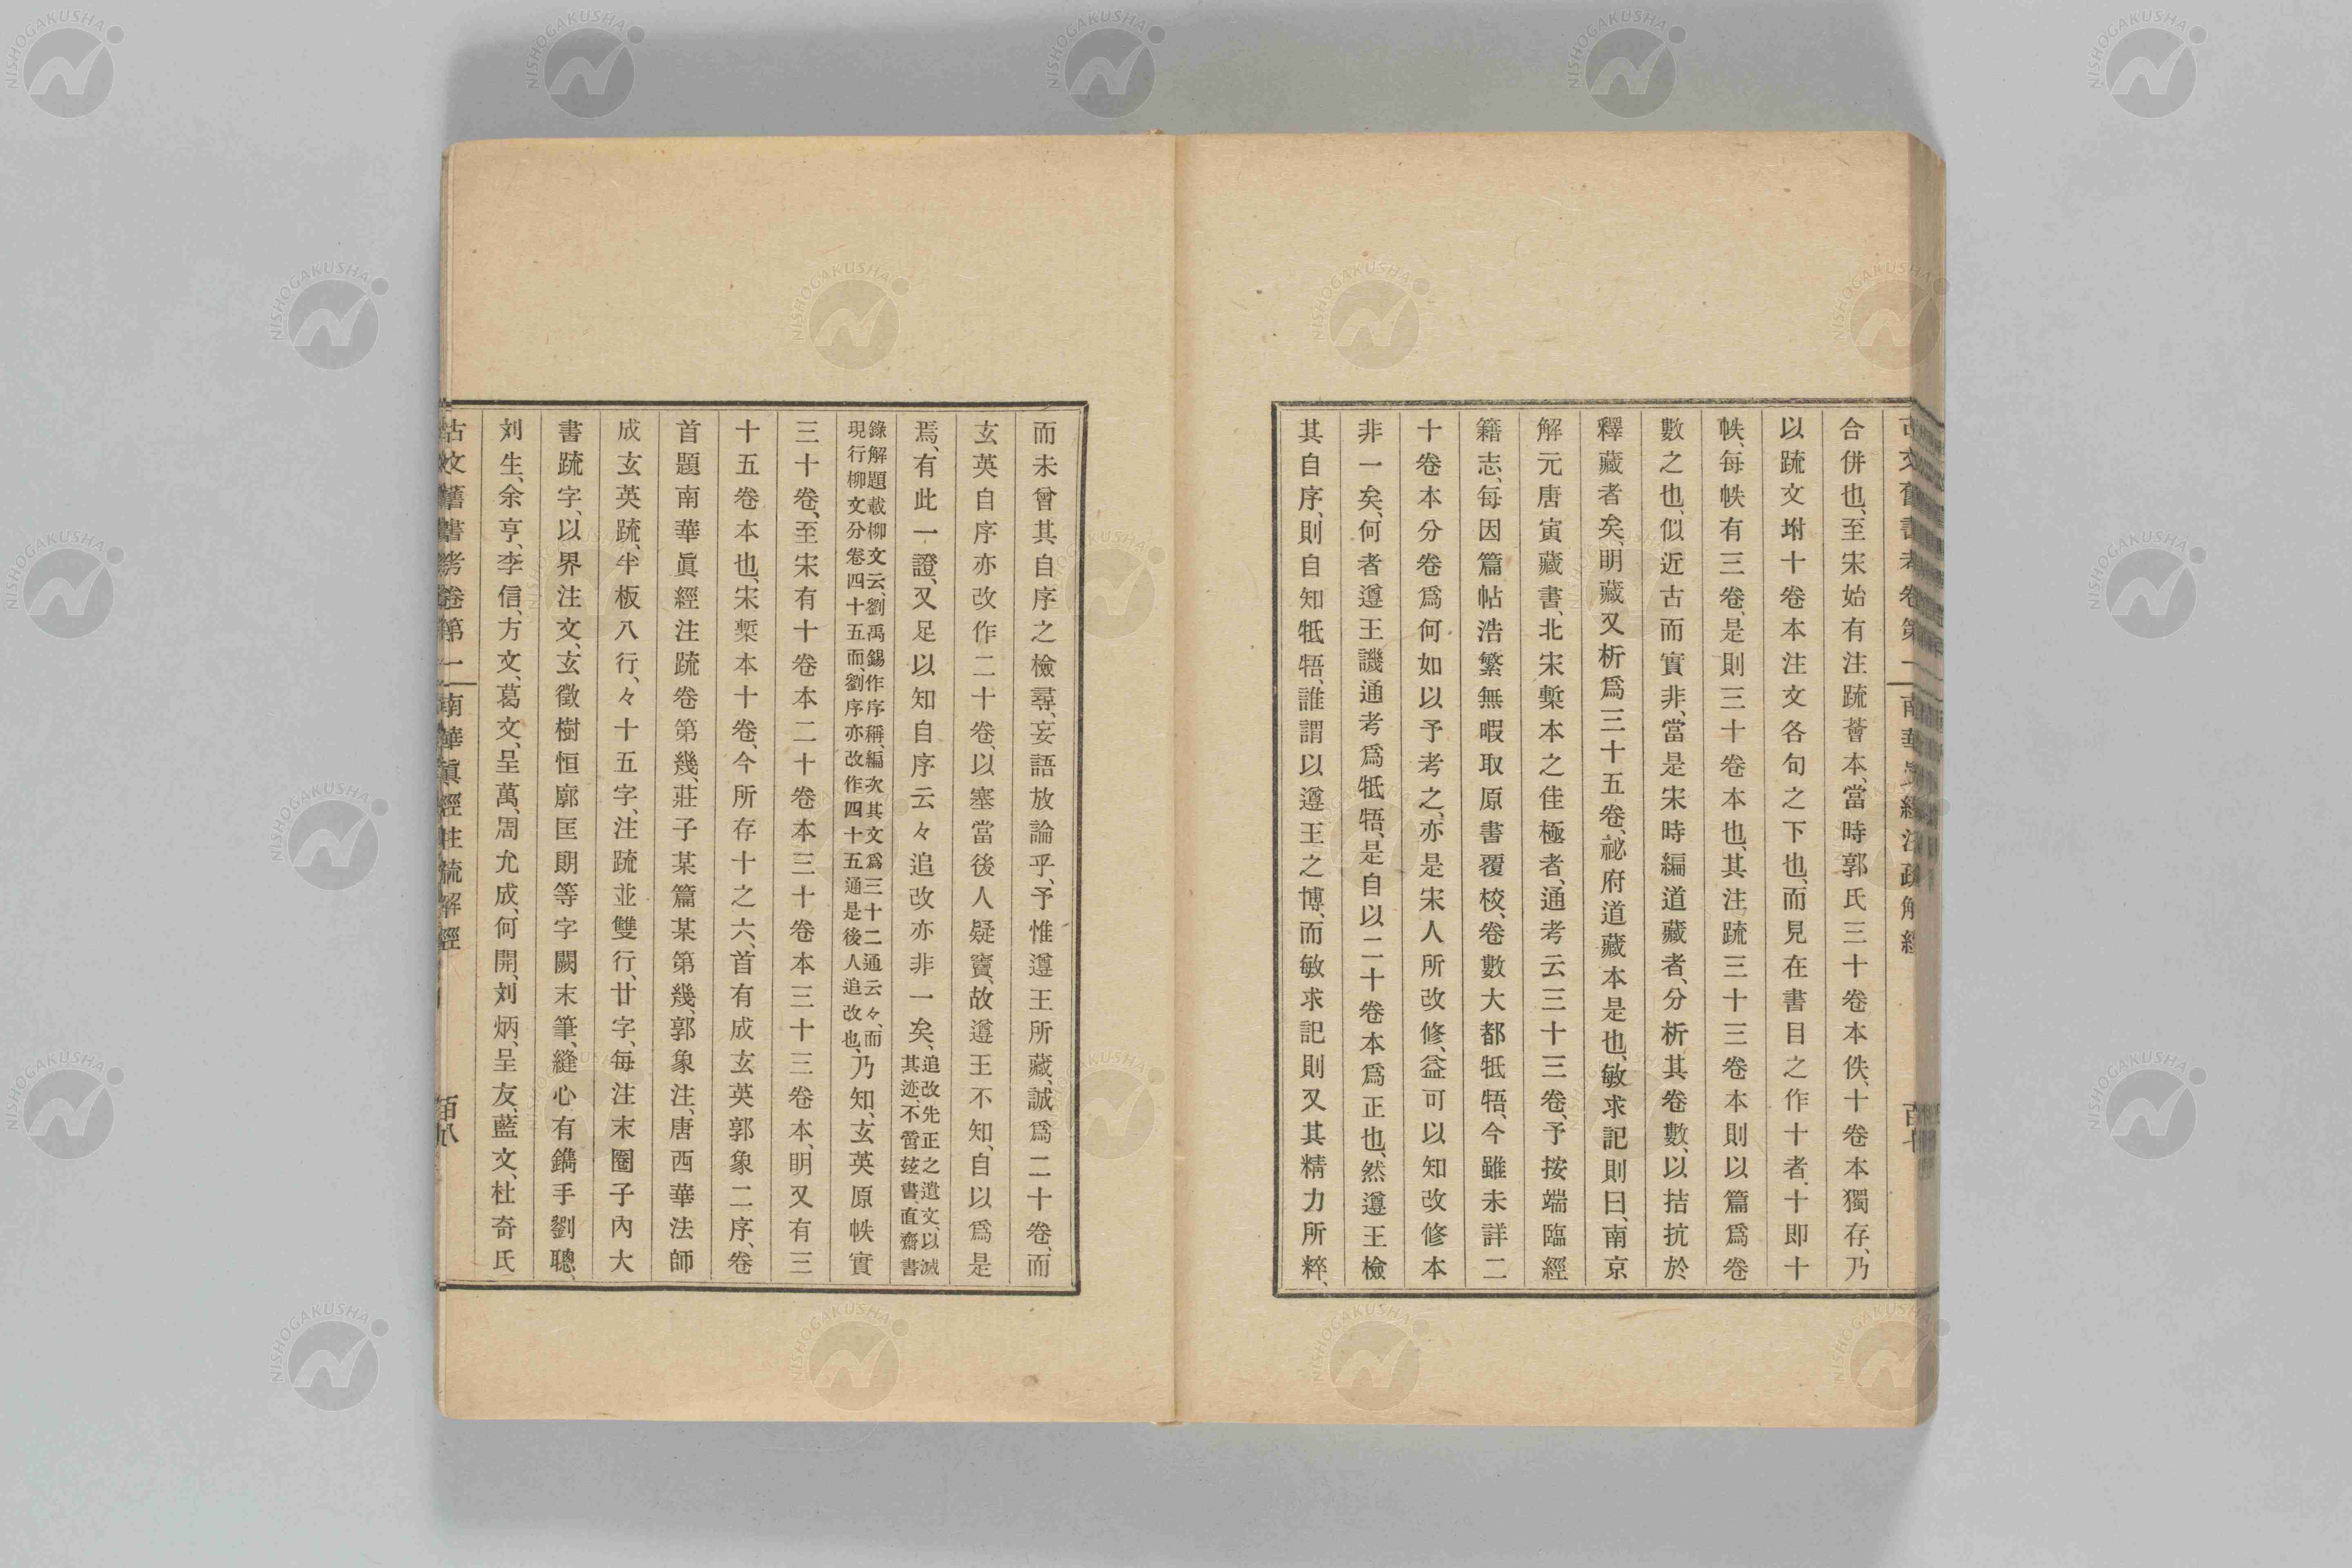 合併也、至宋始有注䟽薈本、當時郭氏三十卷本佚、十卷本獨存、乃
以䟽文坿十卷本注文各句之下也、而見在書目之作十者、十即十
帙、每帙有三卷、是則三十卷本也、其注䟽三十三卷本則以篇爲卷
數之也、似近古而實非、當是宋時編道藏者、分析其卷數、以拮抗於
釋藏者矣、明藏又析爲三十五卷、祕府道藏本是也、敏求記則曰、南京
解元唐寅藏書、北宋槧本之佳極者、通考云三十三卷、予按端臨經
籍志、每因篇帖浩繁無暇取原書覆校、卷數大都牴牾、今雖未詳二
十卷本分卷爲何如以予考之、亦是宋人所改修、益可以知改修本
非一矣、何者遵王譏通考爲牴牾、是自以二十卷本爲正也、然遵王檢
其自序、則自知牴牾、誰謂以遵王之博、而敏求記則又其精力所粹、
而未曾其自序之檢尋、妄語放論乎、予惟遵王所藏、誠爲二十卷、而
玄英自序亦改作二十卷、以塞當後人疑竇、故遵王不知、自以爲是
焉、有此一證、又足以知自序云々追改亦非一矣、追改先正之遺文、以滅其迹、不啻玆書、直齋書
錄解題載柳文云、劉禹錫作序稱、編次其文爲三十二通云々、而現行柳文分卷四十五、而劉序亦改作四十五通是後人追改也、乃知、玄英原帙實
三十卷、至宋有十卷本二十卷本三十卷本三十三卷本、明又有三
十五卷本也、宋槧本十卷、今所存十之六、首有成玄英郭象二序、卷
首題南華眞經注䟽卷第幾、莊子某篇某第幾、郭象注、唐西華法師
成玄英䟽、半板八行、々十五字、注䟽並雙行、廿字、每注末圈子內大
書䟽字、以界注文、玄徵樹恒廓匡朗等字闕末筆、縫心有鐫手劉聰、
刘生、余亨、李信、方文、葛文、呈萬、周允成、何開、刘炳、呈友、藍文、杜奇氏
古文舊書考卷第二 南華眞經注䟽解經 百八
NISHOGAKUSHA